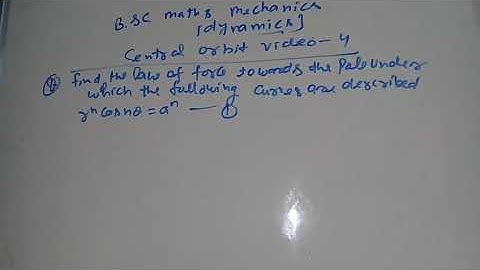 B.SC maths mechanics
[dynamics]
Central orbit video-4
find the law of force towards the Pole under
which the following curves are described
rⁿcosnθ=aⁿ — ①